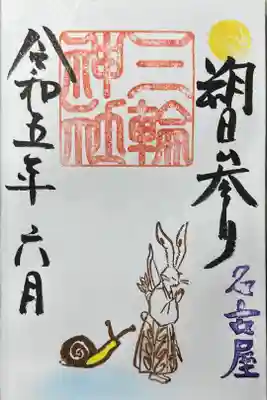 朔日参り
名古屋
三輪
神社
令和五年 六月